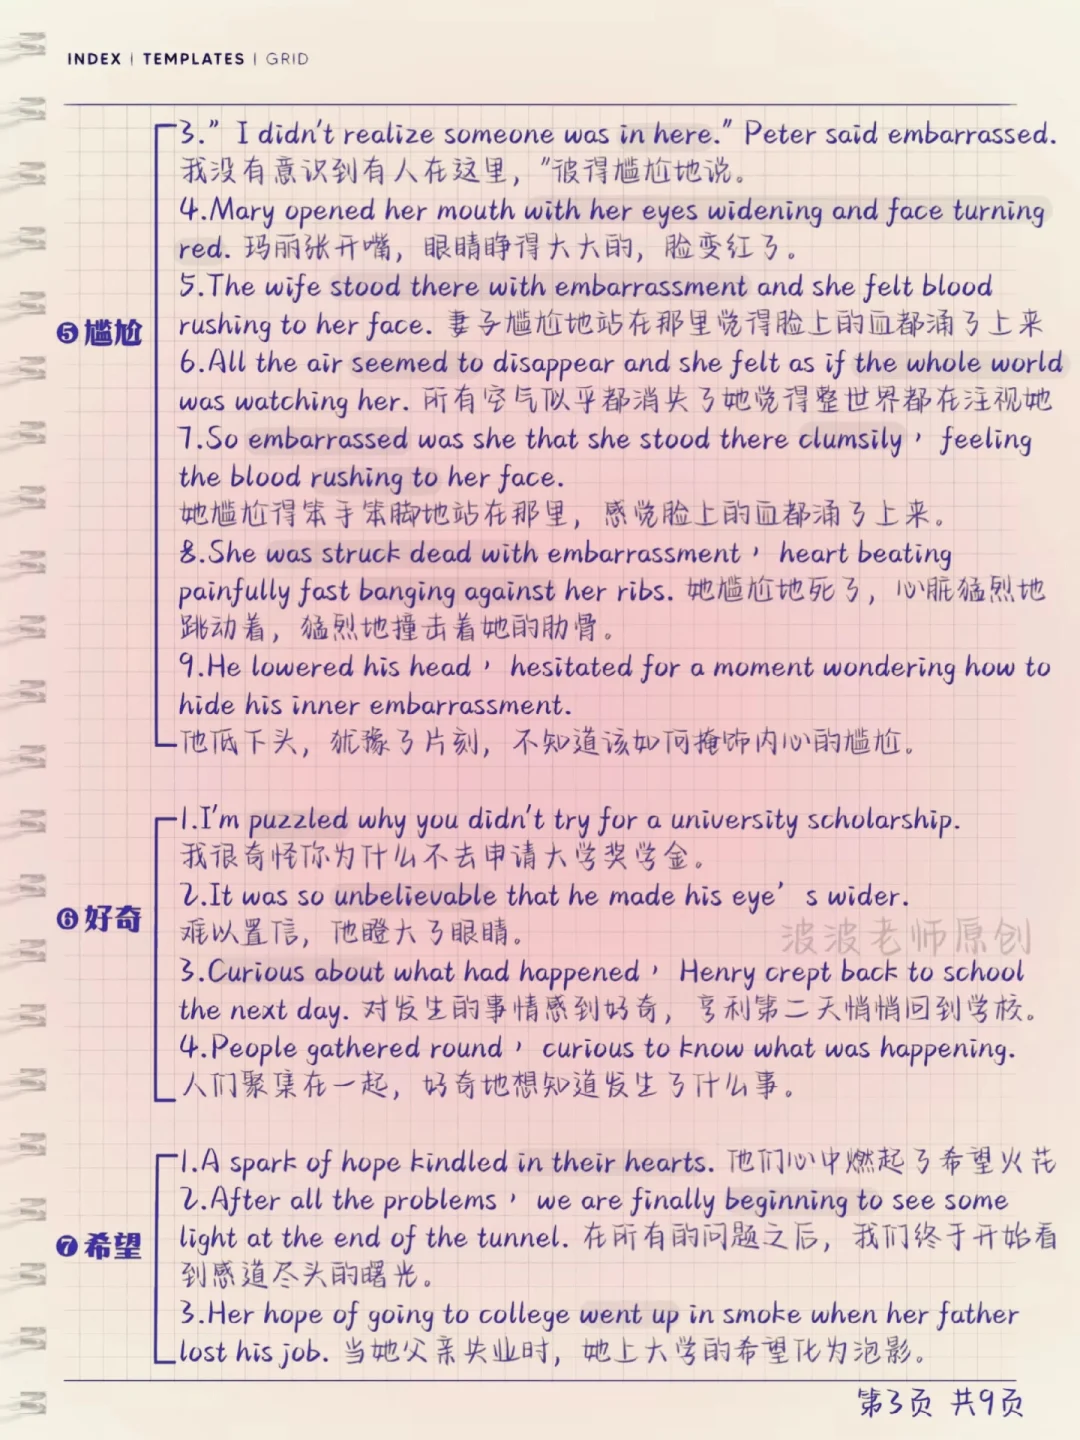 INDEX | TEMPLATES | GRID
3.” I didn't realize someone was in here.” Peter said embarrassed.
我没有意识到有人在这里，“彼得尴尬地说。
4.Mary opened her mouth with her eyes widening and face turning
red. 玛丽张开嘴，眼睛睁得大大的，脸变红了。
5.The wife stood there with embarrassment and she felt blood
rushing to her face. 妻子尴尬地站在那里觉得脸上的血都涌了上来
❺尴尬
6.All the air seemed to disappear and she felt as if the whole world
was watching her. 所有空气似乎都消失了她觉得整世界都在注视她
7.So embarrassed was she that she stood there clumsily，feeling
the blood rushing to her face.
她尴尬得笨手笨脚地站在那里，感觉脸上的血都涌了上来。
8.She was struck dead with embarrassment，heart beating
painfully fast banging against her ribs. 她尴尬地死了，心脏猛烈地
跳动着，猛烈地撞击着她的肋骨。
9.He lowered his head，hesitated for a moment wondering how to
hide his inner embarrassment.
他低下头，犹豫了片刻，不知道该如何掩饰内心的尴尬。
1.I'm puzzled why you didn't try for a university scholarship.
我很奇怪你为什么不去申请大学奖学金。
2.It was so unbelievable that he made his eye’s wider.
❻好奇
难以置信，他瞪大了眼睛。
波波老师原创
3.Curious about what had happened，Henry crept back to school
the next day. 对发生的事情感到好奇，亨利第二天悄悄回到学校。
4.People gathered round，curious to know what was happening.
人们聚集在一起，好奇地想知道发生了什么事。
1.A spark of hope kindled in their hearts. 他们心中燃起了希望火花
2.After all the problems，we are finally beginning to see some
light at the end of the tunnel. 在所有的问题之后，我们终于开始看
❼希望
到感道尽头的曙光。
3.Her hope of going to college went up in smoke when her father
lost his job. 当她父亲失业时，她上大学的希望化为泡影。
第3页 共9页